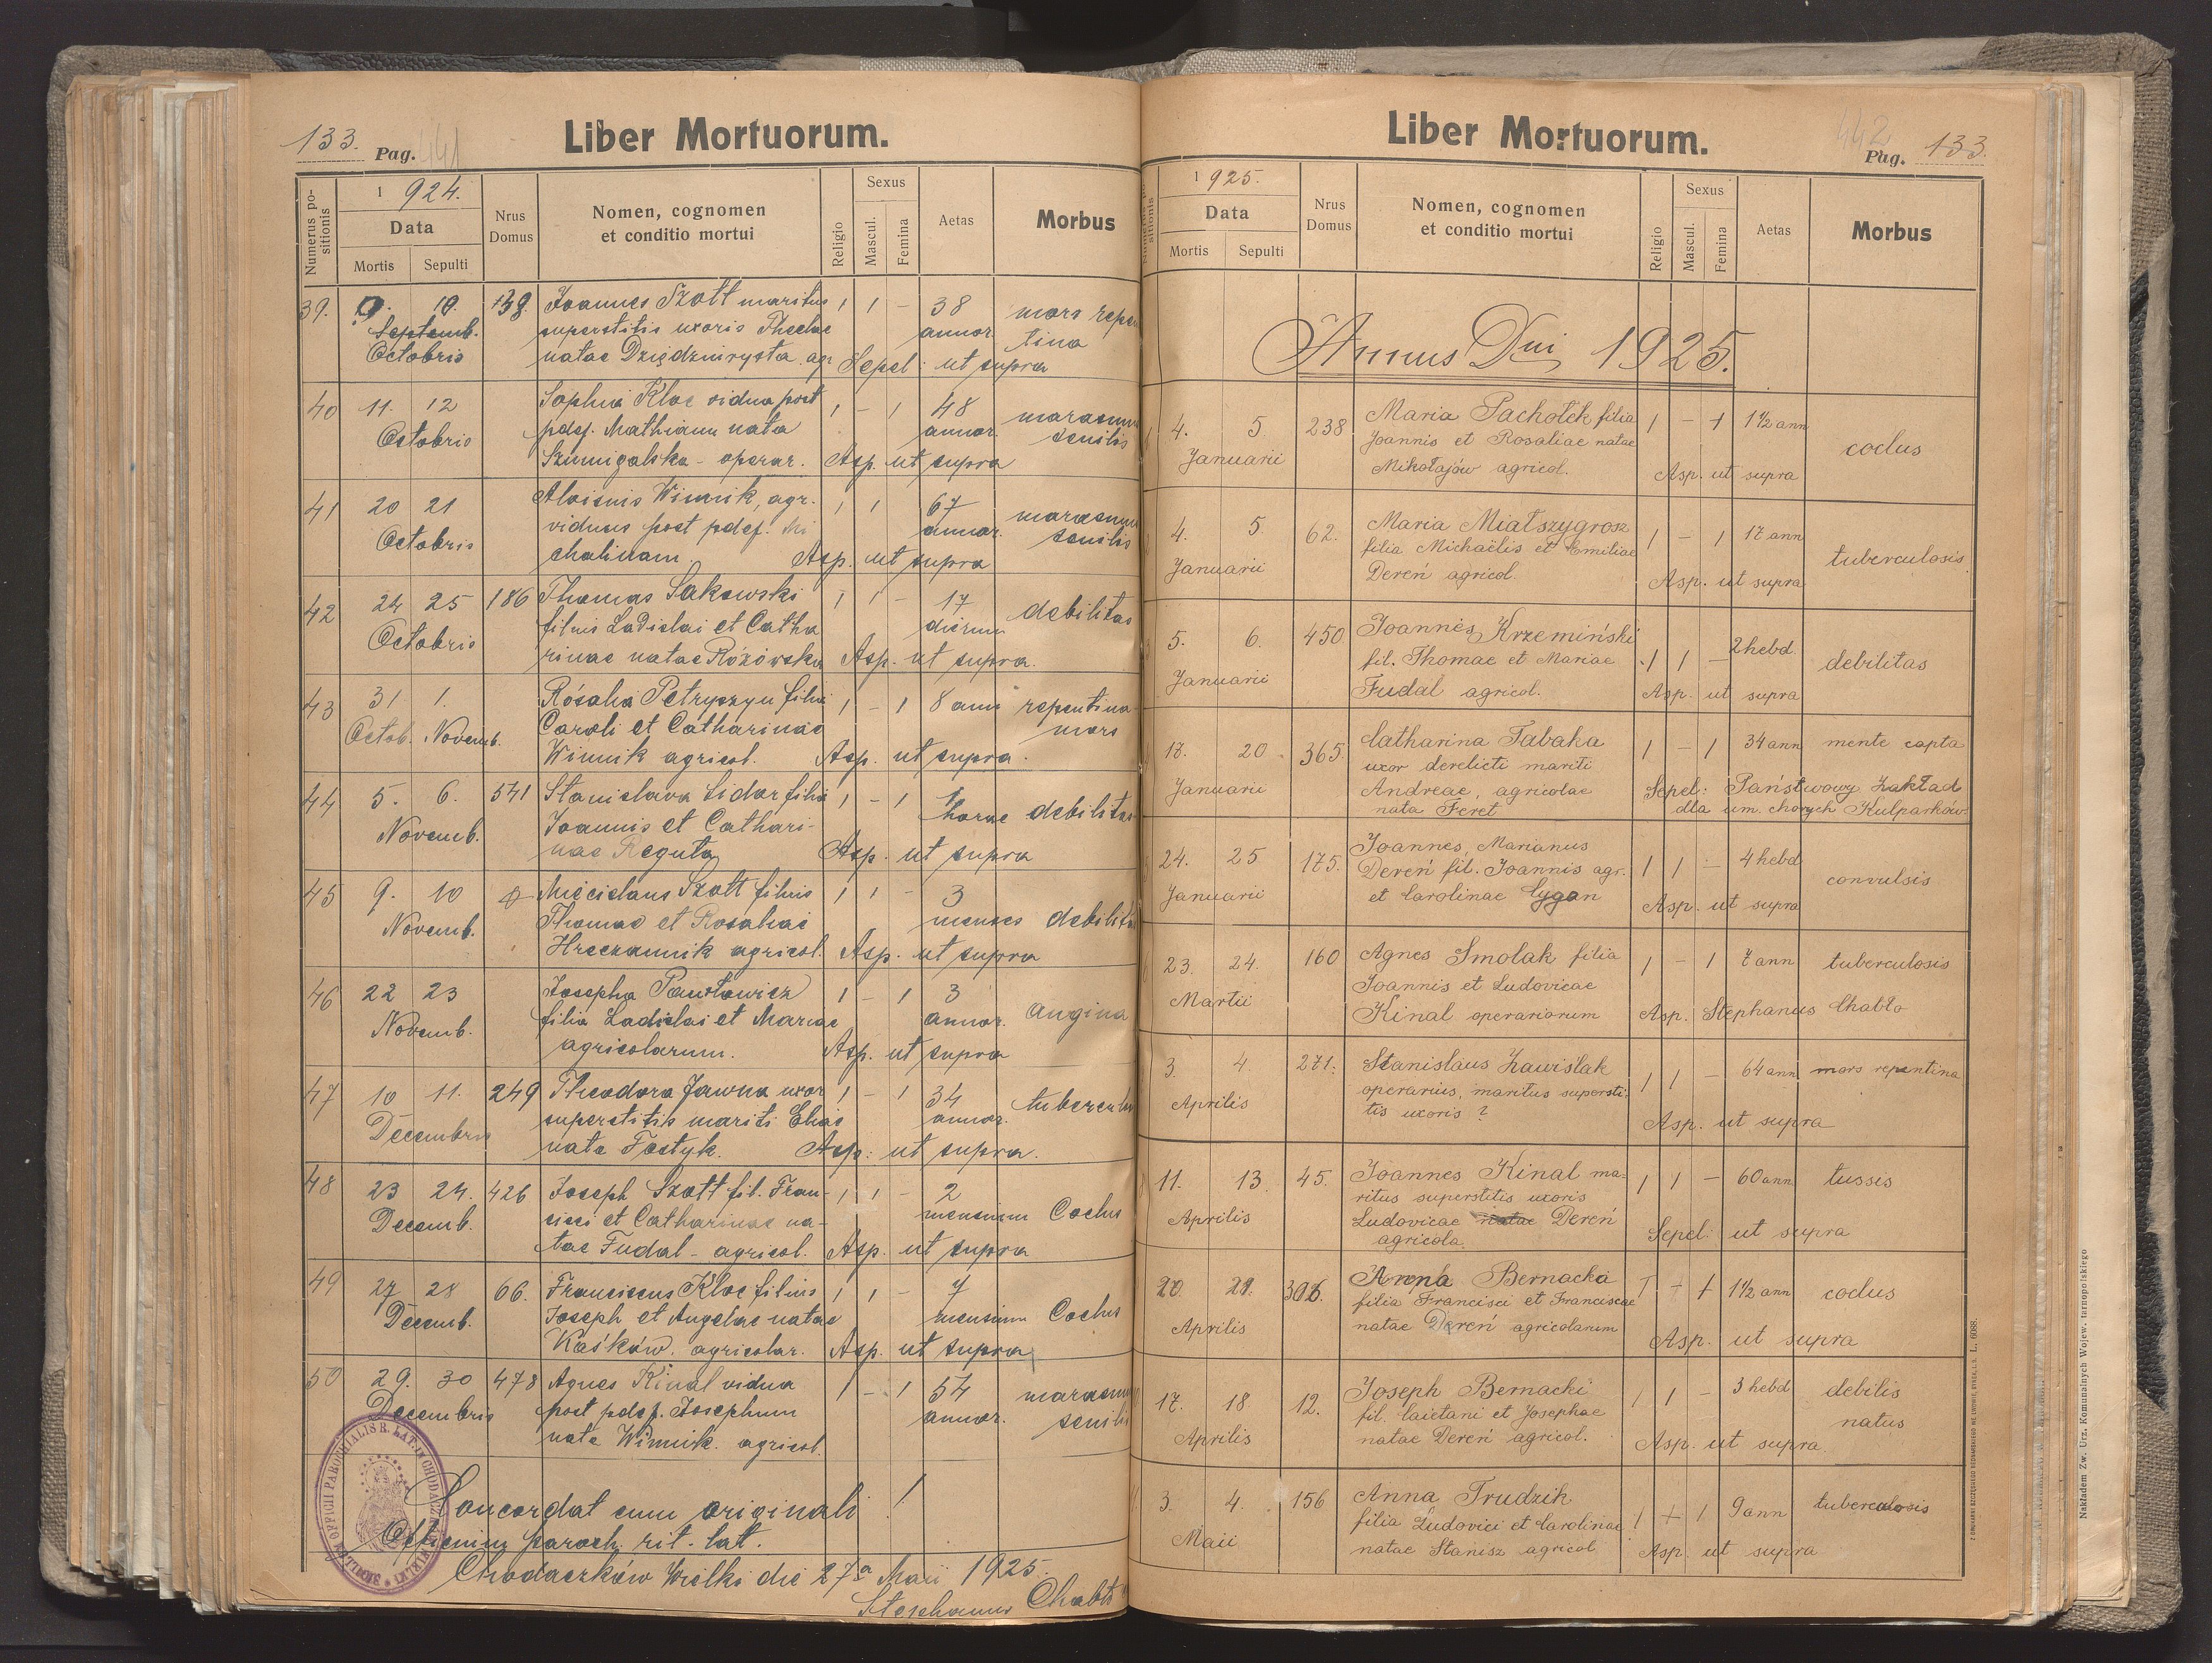 133. Pag. 441
Liber Mortuorum.
Numerus positionis
1924.
Data
Mortis Sepulti
Nrus Domus
Nomen, cognomen et conditio mortui
Religio
Sexus
Mascul. Femina
Aetas
Morbus
39. 9. 10. 139. Joannes Szott maritus 1 1 - 38 mors repen
Septemb. superstitis uxoris Theclae annor. tina
Octobris natae Dziędziurysta. agr Sepel: ut supra
40 11. 12 Sophia Kloc vidua post 1 - 1 48 marasmus
Octobris pdef. Mathiam nata annor. senilis
Szumigalska - operar. Asp. ut supra
41 20 21 Aloisius Winnik, agr. 1 1 67 marasmus
Octobris viduus post pdef. Mi annor. senilis
chalinam. Asp. ut supra
42 24 25 186 Thomas Sakowski 1 1 - 17 debilitas
Octobris filius Ladislai et Catha dierum
rinae natae Rózówska Asp. ut supra.
43 31 1. Rosalia Petryszyn filia 1 - 1 8 ann repentina
Octob. Novemb. Caroli et Catharinae mors
Winnik agricol. Asp. ut supra.
44 5. 6. 541 Stanislava Sidor filia 1 - 1 1 debilitas
Novemb. Joannis et Cathari- horae
nae Reguta Asp. ut supra
45 9. 10 Miecislaus Szott filius 1 1 - 3
Novemb. Thomae et Rosaliae menses debilita
Hreczannik agricol. Asp. ut supra
46 22 23 Josepha Pawłowicz 1 - 1 3 angina
Novemb. filia Ladislai et Mariae annor.
agricolarum. Asp. ut supra
47 10 11. 249 Theodora Jawna uxor 1 - 1 34 tubercul
Decembris superstitis mariti Eliae annor.
nata Fostyk. Asp: ut supra.
48 23 24. 426 Joseph Szott fil. Fran- 1 1 - 2
Decemb. cisci et Catharinae na- mensium Coclus
tae Fudal - agricol. Asp. ut supra
49 27 28 66. Franciscus Kloc filius 1 1 - 7
Decemb. Joseph et Angelae natae mensium Coclus
Kaśków. agricolar. Asp. ut supra
50 29. 30 478 Agnes Kinal vidua 1 - 1 54 marasmus
Decembris post pdef. Josephum annor. senilis
nata Winnik. agricol.
Concordat cum originali !
Officium paroch. rit. lat.
Chodaczków Wielki die 27a Maii 1925.
Stephanus Chabło
Liber Mortuorum.
442
Pag. 133.
Numerus positionis
1925.
Data
Mortis Sepulti
Nrus Domus
Nomen, cognomen et conditio mortui
Religio
Sexus
Mascul. Femina
Aetas
Morbus
Annus Dni 1925.
4. 5 238 Maria Pachołek filia 1 - 1 1 1/2 ann
Januarii Joannis et Rosaliae natae coclus
Mikołajów agricol. Asp. ut supra
4. 5. 62. Maria Miałszygrosz 1 - 1 17 ann
Januarii filia Michaëlis et Emiliae tuberculosis
Dereń agricol. Asp. ut supra
5. 6. 450 Joannes Krzemiński 1 1 - 2 hebd.
Januarii fil. Thomae et Mariae debilitas
Fudal agricol. Asp. ut supra
18. 20 365. Catharina Tabaka 1 - 1 34 ann mente capta
Januarii uxor derelicti mariti
Andreae, agricolae Sepel: Państwowy Zakład
nata Feret dla um. chorych Kulparków.
24. 25 175. Joannes, Marianus 1 1 - 4 hebd
Januarii Dereń fil. Joannis agr. convulsis
et Carolinae Cygan Asp. ut supra
23. 24. 160 Agnes Smolak filia 1 - 1 7 ann tuberculosis
Martii Joannis et Ludovicae
Kinal operariorum Asp. Stephanus Chabło
3. 4. 271. Stanislaus Zawiślak 1 1 - 64 ann mors repentina
Aprilis operarius, maritus supersti-
tis uxoris ? Asp. ut supra
11. 13. 45. Joannes Kinal ma- 1 1 - 60 ann tussis
Aprilis ritus superstitis uxoris
Ludovicae natae Dereń Sepel: ut supra
agricola.
20. 21. 306. Anna Bernacka 1 - 1 1 1/2 ann coclus
Aprilis filia Francisci et Franciscae
natae Dereń agricolarum Asp. ut supra
17. 18 12. Joseph Bernacki 1 1 - 3 hebd debilis
Aprilis fil. Caietani et Josephae natus
natae Dereń agricol. Asp. ut supra.
3. 4. 156 Anna Trudzik 1 - 1 9 ann tuberculosis
Maii filia Ludovici et Carolinae
natae Stanisz agricol Asp. ut supra
Nakładem Zw. Urz. Komunalnych Wojew. tarnopolskiego
L. 608.